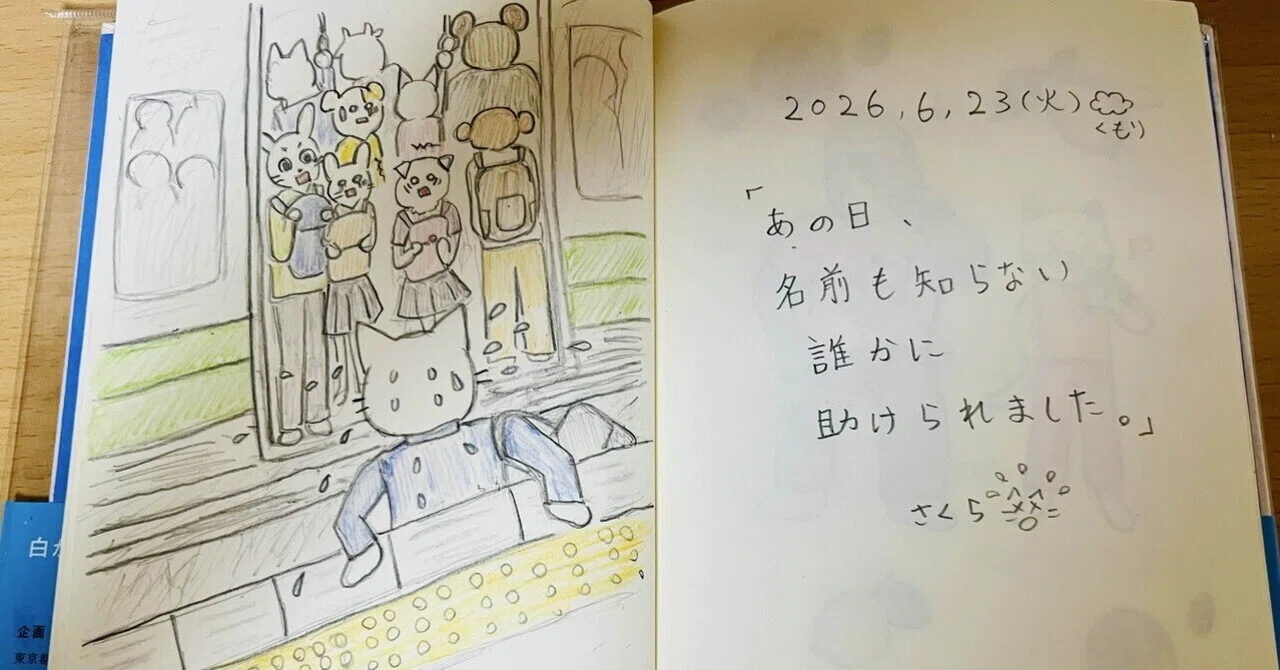 2026,6,23(火)
くもり
「あの日、
名前も知らない
誰かに
助けられました。」
さくら
企画
東京都